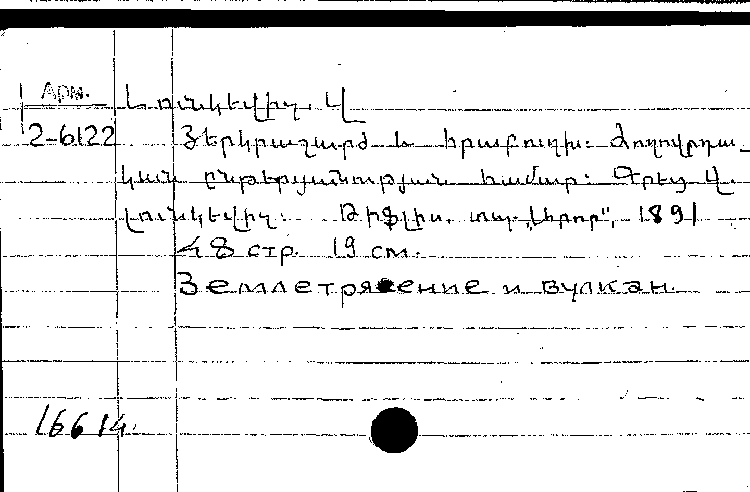 Арм.
Լունկեվիչ, Վ
2-6122
Երկրաշարժ և հրաբուխ: Ժողովրդա_
կան ընթերցանության համար: Գրեց Վ.
Լունկեվիչ: Թիֆլիս, տպ. „Հերոր", 1891
48 стр. 19 см.
Землетрясение и вулкан.
16614.